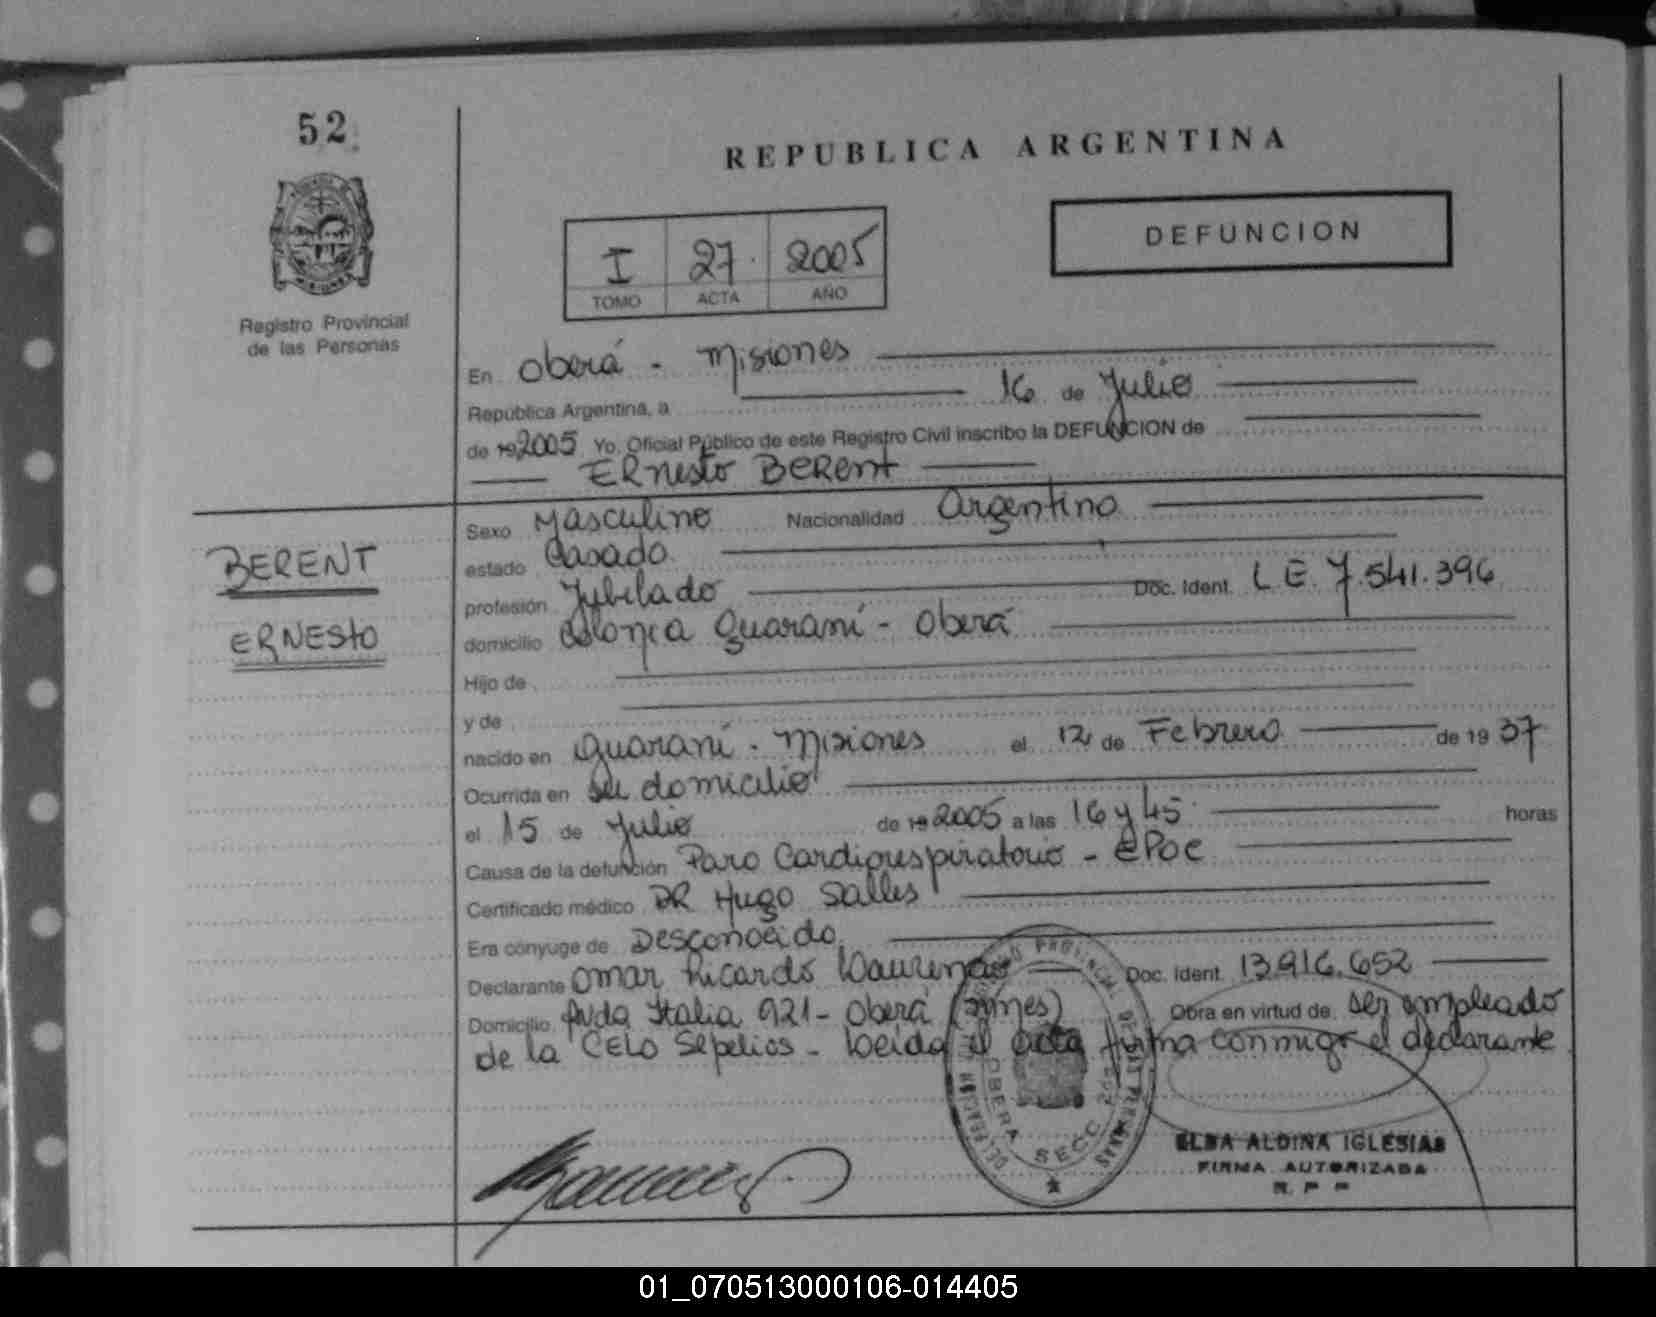 52
REPUBLICA ARGENTINA
DEFUNCION
I 27 2005
TOMO ACTA AÑO
Registro Provincial
de las Personas
En Oberá - Misiones
República Argentina, a 16 de Julio
de 19 2005 Yo, Oficial Público de este Registro Civil inscribo la DEFUNCION de
Ernesto Berent
BERENT
ERNESTO
Sexo Masculino Nacionalidad Argentino
estado Casado
profesión Jubilado Doc. Ident. L E 7.541.396
domicilio Colonia Guaraní - Oberá
Hijo de
y de
nacido en Guaraní - Misiones el 12 de Febrero de 19 37
Ocurrida en su domicilio
el 15 de Julio de 19 2005 a las 16 y 45 horas
Causa de la defunción Paro Cardiorespiratorio - EPOC
Certificado médico DR Hugo Salles
Era cónyuge de Desconocido
Declarante Omar Ricardo Doc. Ident. 13.916.652
Domicilio Avda Italia 921 - Oberá (Mnes) Obra en virtud de ser empleado
de la CELO Sepelios - Leida el acta firma conmigo el declarante
OBERA
SECC
ELBA ALDINA IGLESIAS
FIRMA AUTORIZADA
R. P P
01_070513000106-014405